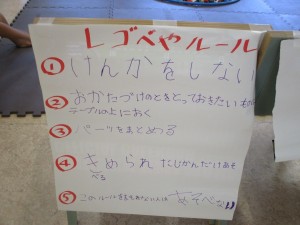 レゴべやルール
① けんかをしない
② おかたづけのときとっておきたいものは
テーブルのよにおく
③ パーツをまとめる
④ きめられたじかんだけあそ
べる
⑤ このルールをまもれない人は あそべない